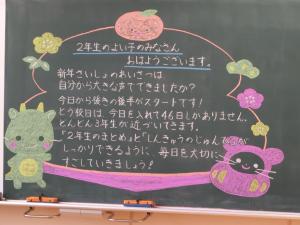 2年生のよい子のみなさん
おはようございます。
新年さいしょのあいさつは
自分から大きな声でできましたか?
今日から後きの後半がスタートです!
とう校日は、今日を入れて46日しかありません。
どんどん3年生が近づいてきます。
「2年生のまとめ」と「しんきゅうのじゅんび」が
しっかりできるように、毎日を大切に
すごしていきましょう!